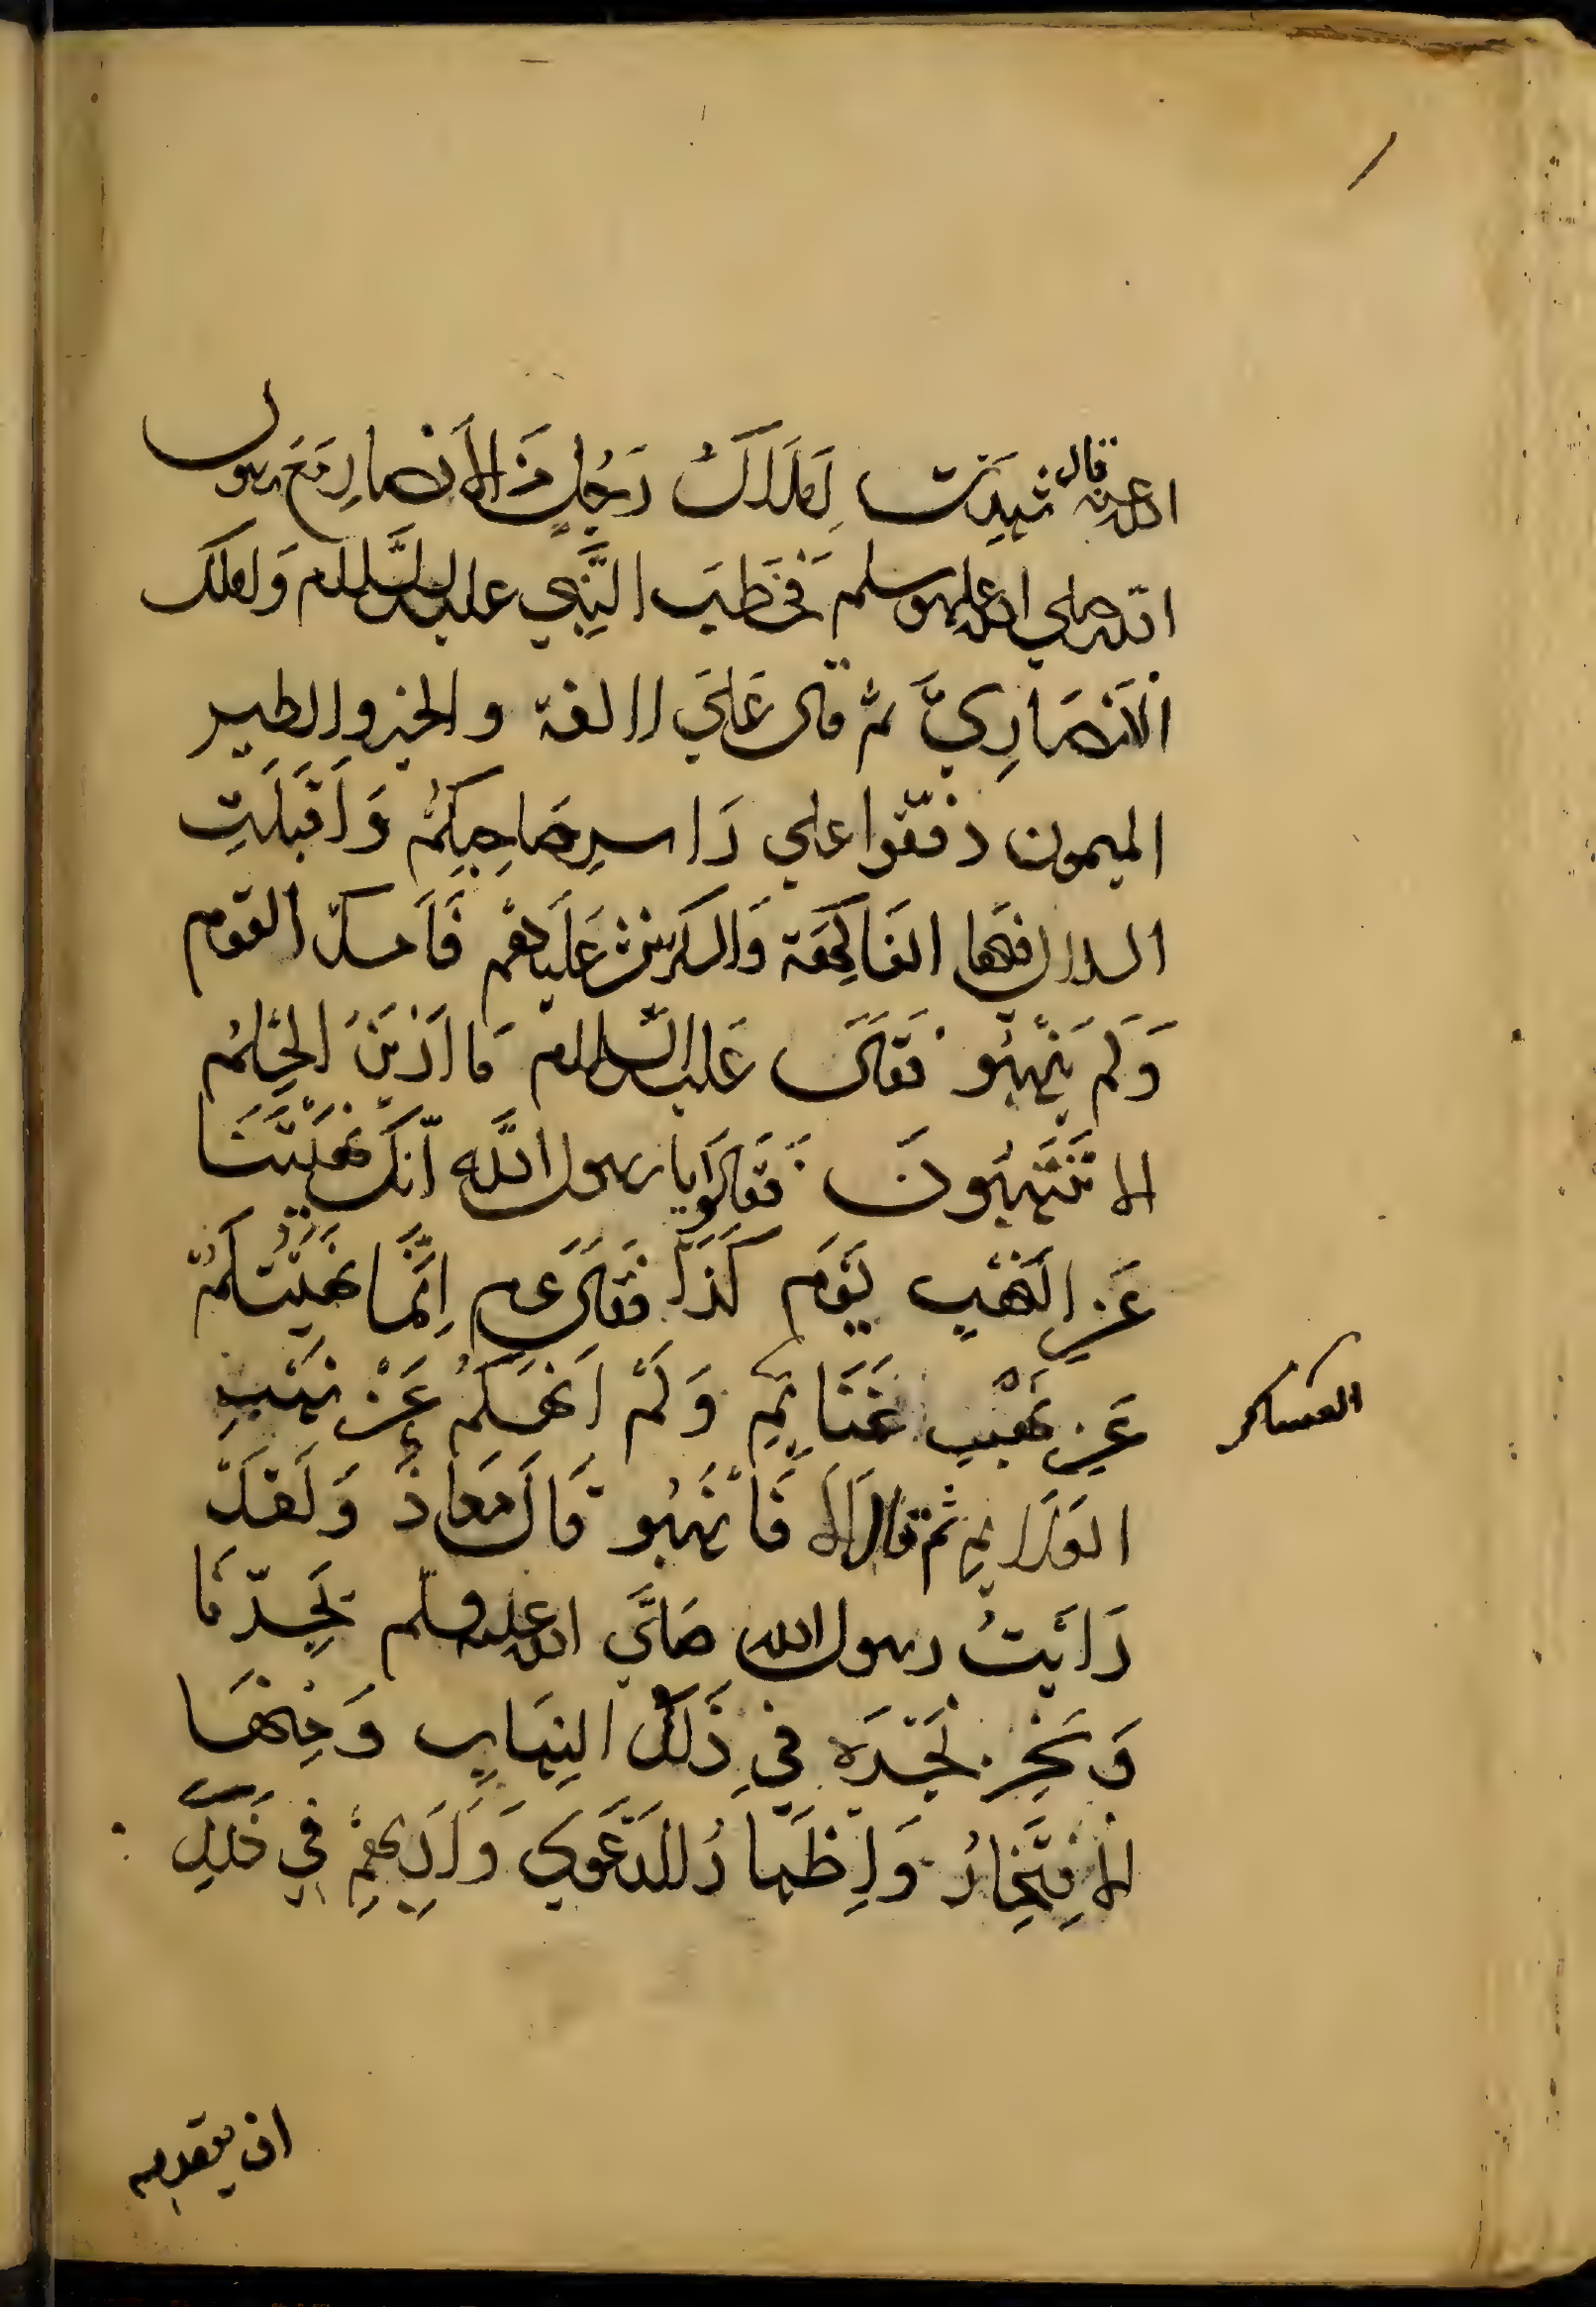 الله عنه قال شهدت املاك رجل من الانصار مع رسول
الله صلي الله عليه وسلم فخطب النبي عليه السلام واملك
الانصاري ثم قال علي الالفة والخير والطير
الميمون دففوا علي راس صاحبكم واقبلت
السلال فيها الفاكهة والسكر ينثر عليهم فامسك القوم
ولم ينهبو فقال عليه السلام ما ازين الحلم
الا تنتهبون فقالوا يا رسول الله انك نهيتنا
عن النهب يوم كذا فقال عم انما نهيتكم
عن نهب غنائم ولم انهكم عن نهب
العساكر
الولايم ثم قال الا فانهبو قال معاذ ولقد
رايت رسول الله صلي الله عليه وسلم يجرنا
ونحن نجره في ذلك النهاب ومنها
الافتخار واظهار الدعوي وادبهم في ذلك
ان يقدمه